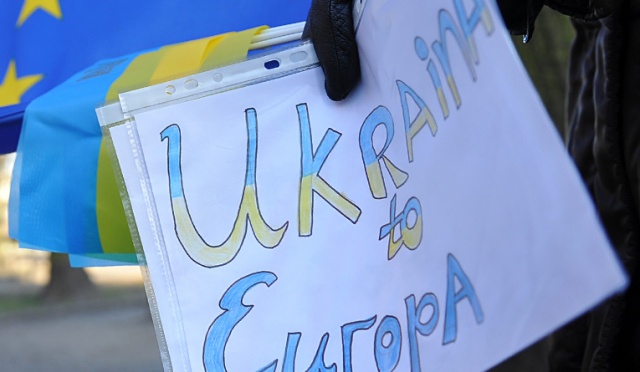 UkRAinA
to
EuropA